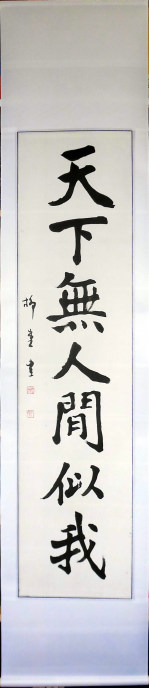 天下無人間似我
柳堂書